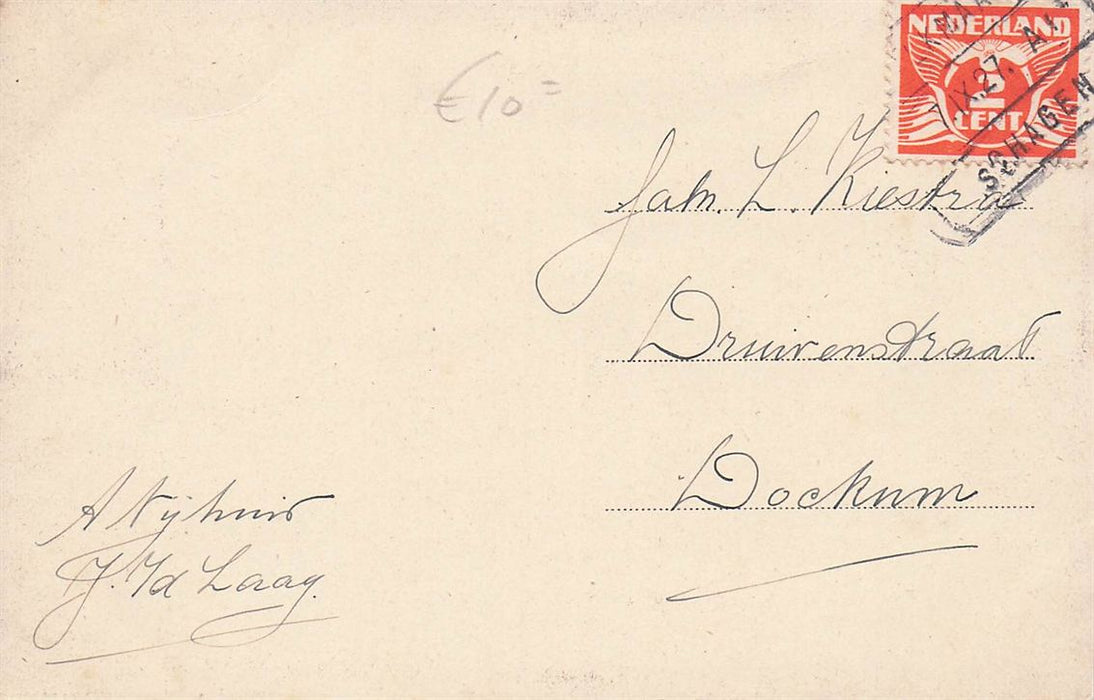 €10=
NEDERLAND
2
CENT
7.IX.27. A
SCHAGEN
Fam. L. Kiestra
Druivenstraat
Dockum
A Nyhuis
J. Vd Laag.